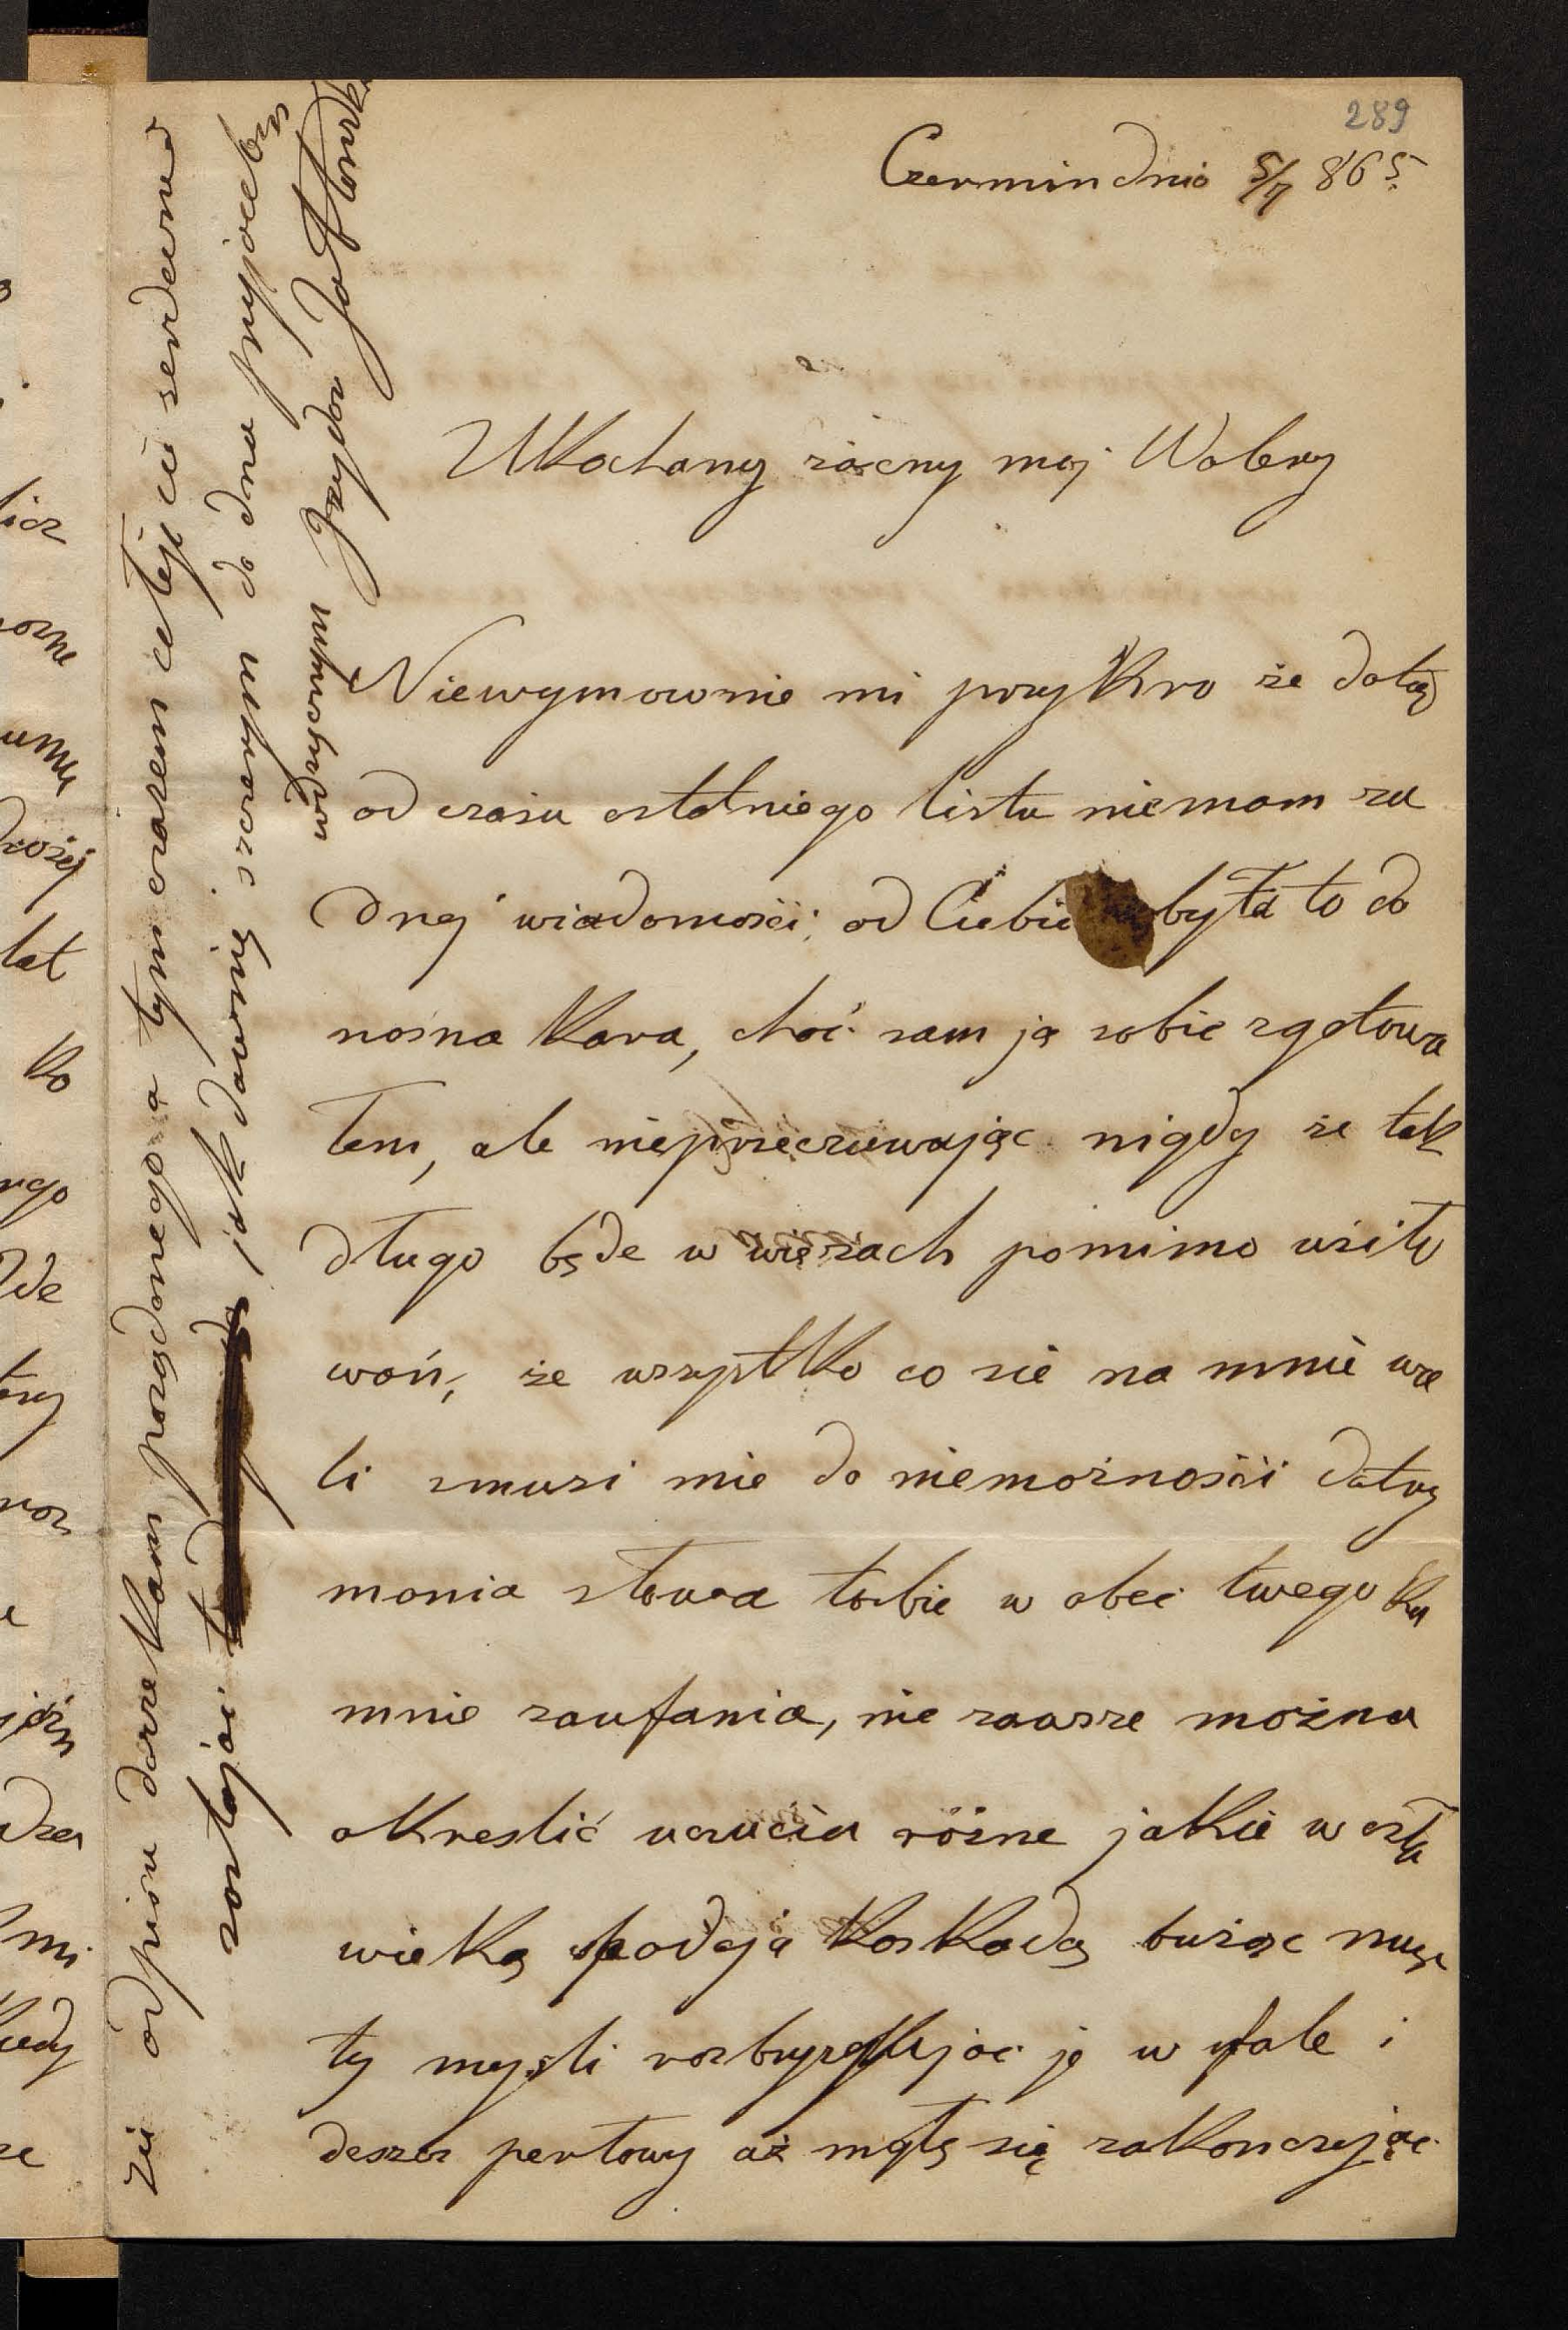 289
Czermin dnia 5/7 865.
Ukochany zacny moj Walery
Niewymownie mi przykro że dotąd
od czasu ostatniego listu niemam ża
dnej wiadomości od Ciebie była to do
nosna kara, choć sam ją sobie zgotowa
łem, ale nieprzeczuwając nigdy że tak
długo będe w więzach pomimo usiło
wań, że wszystko co sie na mnie wa
li zmusi mie do niemożności dotrzy
mania słowa tobie w obec twego ku
mnie zaufania, nie zawsze można
okreslić uczucia różne jakie w czło
wieka spadają kaskadą burząc nur
ty mysli rozbryzgując je w fale i
deszcz perłowy aż mgłą się zakonczając
zie odpisu darze kam pożądanego a tym czasem całuje cie serdecznie
zostając jak dawniej szczerym do dna przyjacielem
wdzięcznym Izydor
licz
lat
ko
mi